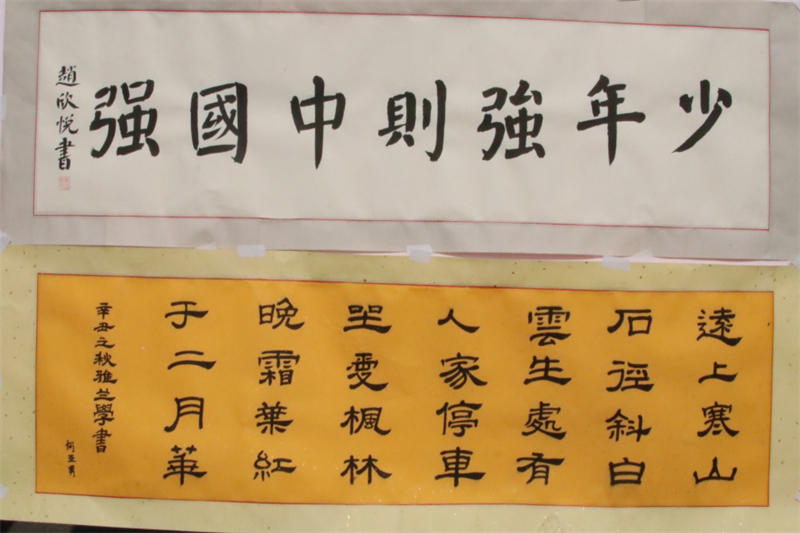 少年強則中國强
趙欣悅書
遠上寒山
石徑斜白
雲生處有
人家停車
坐愛楓林
晚霜葉紅
于二月華
辛丑之秋雅兰學書